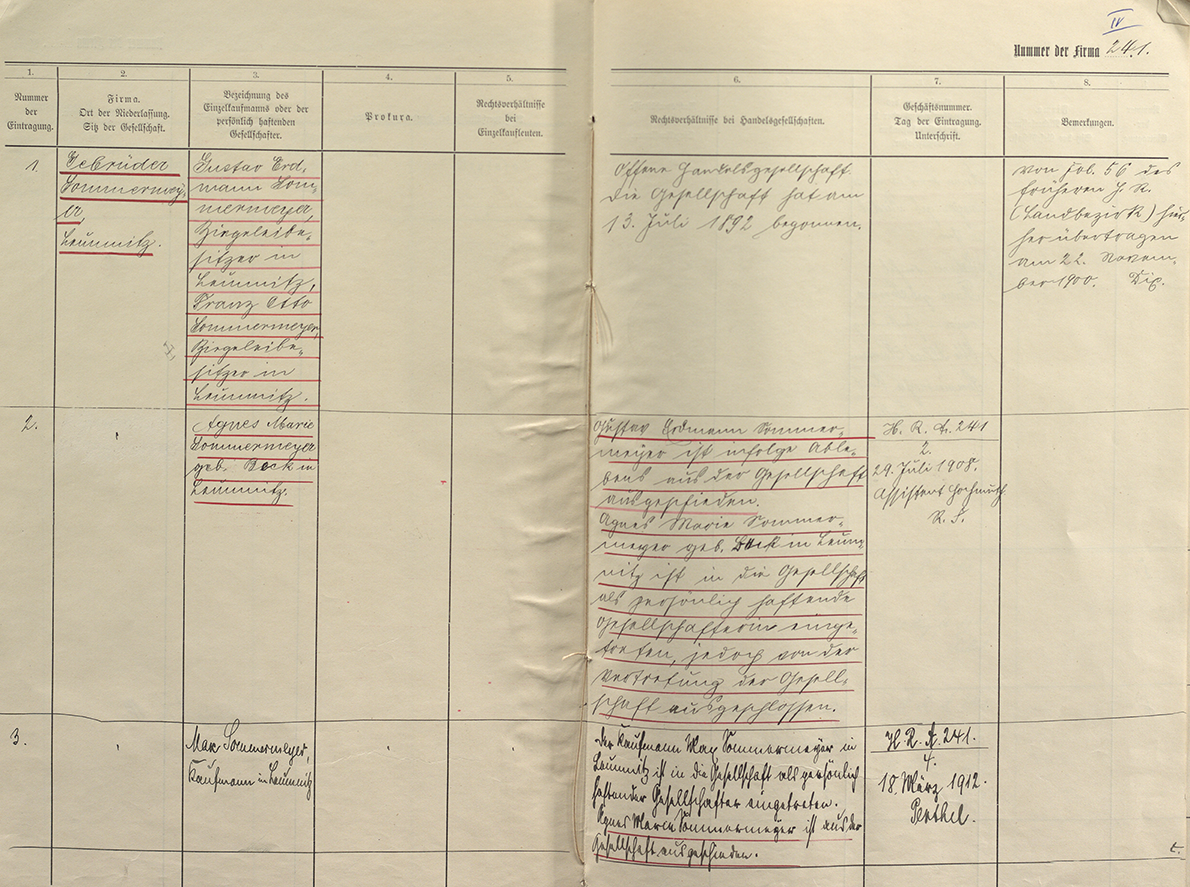 IV
Nummer der Firma 241.
1.
2.
3.
4.
5.
6.
7.
8.
Nummer
der
Eintragung.
Firma.
Ort der Niederlassung.
Sitz der Gesellschaft.
Bezeichnung des
Einzelkaufmanns oder der
persönlich haftenden
Gesellschafter.
Prokura.
Rechtsverhältnisse
bei
Einzelkaufleuten.
Rechtsverhältnisse bei Handelsgesellschaften.
Geschäftsnummer.
Tag der Eintragung.
Unterschrift.
Bemerkungen.
1.
Gebrüder
Sommermey-
er,
Leumnitz.
Gustav Erd-
mann Som-
mermeyer,
Ziegeleibe-
sitzer in
Leumnitz,
Franz Otto
Sommermeyer,
Ziegeleibe-
sitzer in
Leumnitz.
Offene Handelsgesellschaft.
Die Gesellschaft hat am
13. Juli 1892 begonnen.
Von Fol. 56 des
früheren H. R.
(Landbezirk) hier-
her übertragen
am 22. Novem-
ber 1900.
2.
Agnes Marie
Sommermeyer
geb. Bock in
Leumnitz.
Gustav Erdmann Sommer-
meyer ist infolge Able-
bens aus der Gesellschaft
ausgeschieden.
Agnes Marie Sommer-
meyer geb. Bock in Leum-
nitz ist in die Gesellschaft
als persönlich haftende
Gesellschafterin einge-
treten, jedoch von der
Vertretung der Gesell-
schaft ausgeschlossen.
H. R. A. 241
2.
29. Juli 1908.
Assistent Hochmuth
R. S.
3.
Max Sommermeyer,
Kaufmann in Leumnitz
Der Kaufmann Max Sommermeyer in
Leumnitz ist in die Gesellschaft als persönlich
haftender Gesellschafter eingetreten.
Agnes Marie Sommermeyer ist aus der
Gesellschaft ausgeschieden.
H. R. A. 241.
4.
18. März 1912.
Perthel.
t.